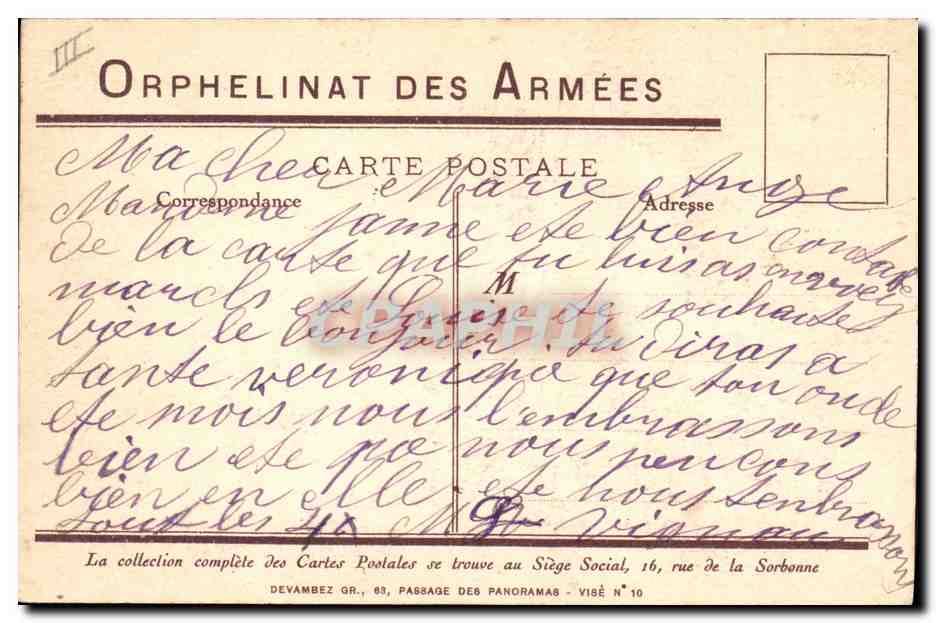 III
ORPHELINAT DES ARMÉES
CARTE POSTALE
Correspondance
Adresse
M
CPAPHIL
Ma cher Marie Ange
Madame janne ete bien contan
de la carte que tu luis as
marcls ete Louise te souhaite
bien le bonjour. tu diras a
tante veronique que ton oncle
ete mois nous l'embrassons
bien ete que nous pencons
bien en elle ete nous tenbrasson
tout les 4
La collection complète des Cartes Postales se trouve au Siège Social, 16, rue de la Sorbonne
DEVAMBEZ GR., 63, PASSAGE DES PANORAMAS - VISÉ N° 10